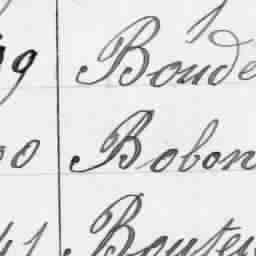 49 Boude
00 Bobon
41 Boute